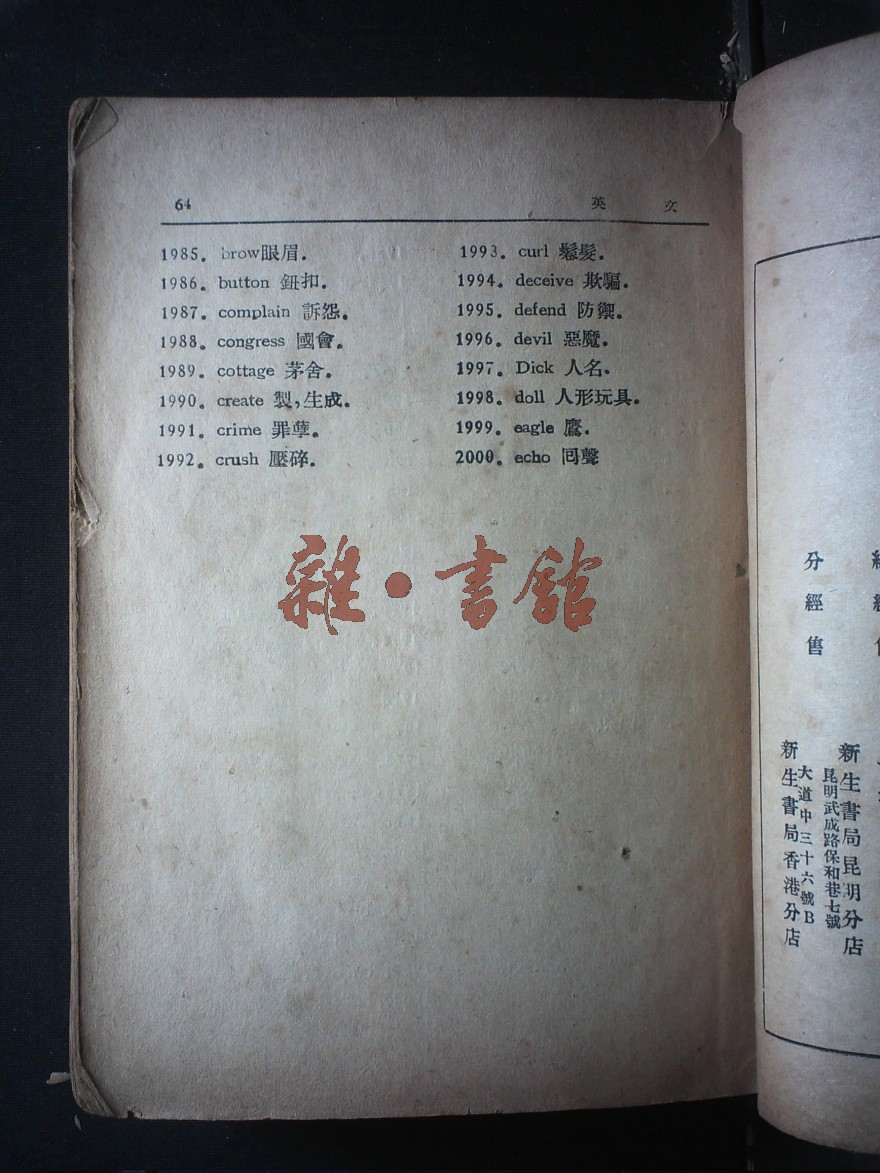 64 英 文
1985. brow眼眉.
1986. button 鈕扣.
1987. complain 訴怨.
1988. congress 國會.
1989. cottage 茅舍.
1990. create 製,生成.
1991. crime 罪孽.
1992. crush 壓碎.
1993. curl 鬈髮.
1994. deceive 欺騙.
1995. defend 防禦.
1996. devil 惡魔.
1997. Dick 人名.
1998. doll 人形玩具.
1999. eagle 鷹.
2000. echo 回聲
雜•書館
分經售
新生書局昆明分店
昆明武成路保和巷七號
大道中三十六號B
新生書局香港分店